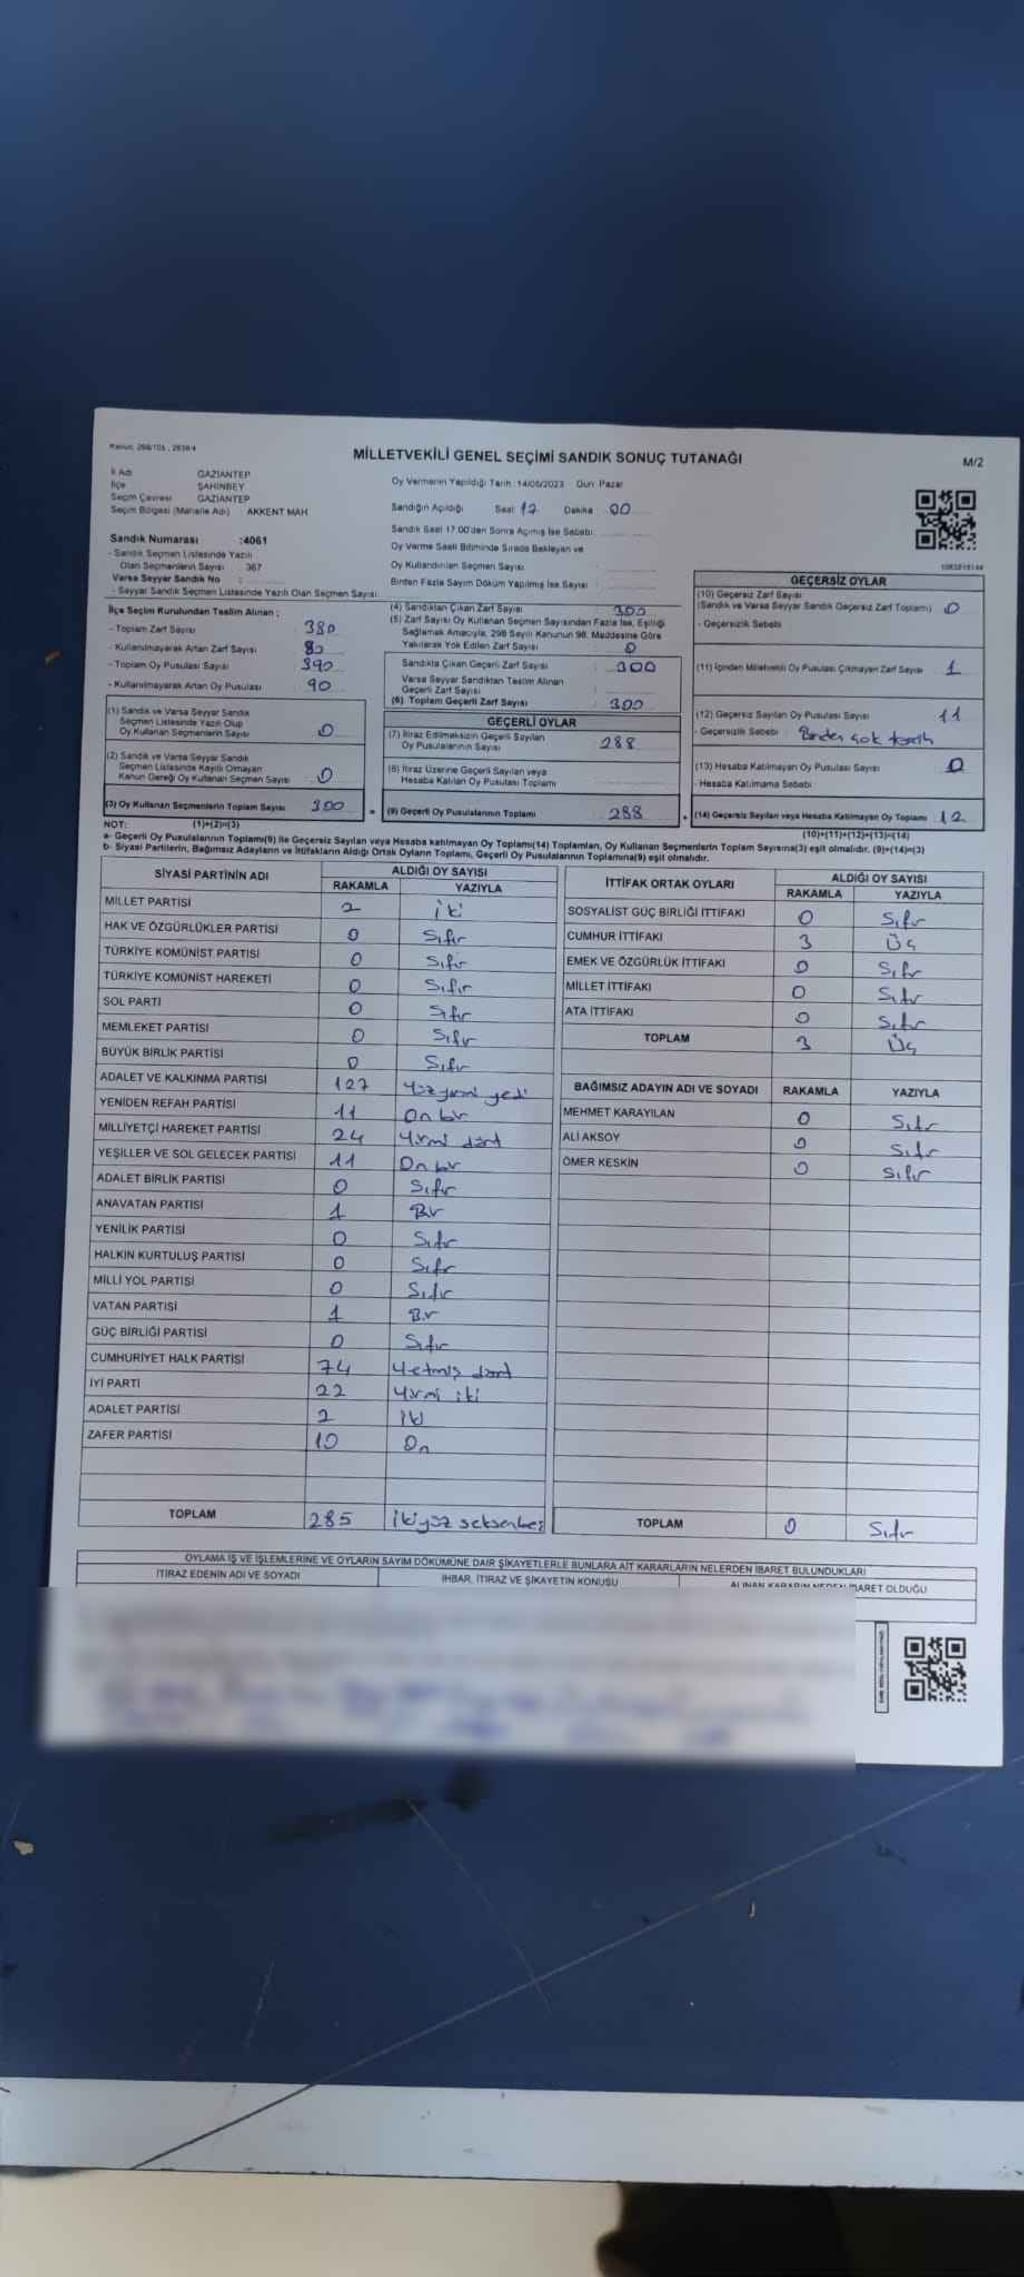 MİLLETVEKİLİ GENEL SEÇİMİ SANDIK SONUÇ TUTANAĞI
M/2
İl Adı GAZİANTEP
İlçe ŞAHİNBEY
Seçim Çevresi GAZİANTEP
Seçim Bölgesi (Mahalle Adı) AKKENT MAH
Sandık Numarası :4061
- Sandık Seçmen Listesinde Yazılı
Olan Seçmenlerin Sayısı 367
Varsa Seyyar Sandık No :
- Seyyar Sandık Seçmen Listesinde Yazılı Olan Seçmen Sayısı
Oy Vermenin Yapıldığı Tarih :14/05/2023 Gün: Pazar
Sandığın Açıldığı Saat 17 Dakika 00
Sandık Saat 17.00'den Sonra Açılmış İse Sebebi
Oy Verme Saati Bitiminde Sırada Bekleyen ve
Oy Kullandırılan Seçmen Sayısı
Birden Fazla Sayım Döküm Yapılmış İse Sayısı
İlçe Seçim Kurulundan Teslim Alınan ;
- Toplam Zarf Sayısı 380
- Kullanılmayarak Artan Zarf Sayısı 80
- Toplam Oy Pusulası Sayısı 390
- Kullanılmayarak Artan Oy Pusulası 90
(1) Sandık ve Varsa Seyyar Sandık
Seçmen Listesinde Yazılı Olup
Oy Kullanan Seçmenlerin Sayısı 0
(2) Sandık ve Varsa Seyyar Sandık
Seçmen Listesinde Kayıtlı Olmayan
Kanun Gereği Oy Kullanan Seçmen Sayısı 0
(3) Oy Kullanan Seçmenlerin Toplam Sayısı 300
(4) Sandıktan Çıkan Zarf Sayısı 300
(5) Zarf Sayısı Oy Kullanan Seçmen Sayısından Fazla İse, Eşitliği
Sağlamak Amacıyla, 298 Sayılı Kanunun 98. Maddesine Göre
Yakılarak Yok Edilen Zarf Sayısı 0
Sandıkta Çıkan Geçerli Zarf Sayısı 300
Varsa Seyyar Sandıktan Teslim Alınan
Geçerli Zarf Sayısı
(6) Toplam Geçerli Zarf Sayısı 300
GEÇERLİ OYLAR
(7) İtiraz Edilmeksizin Geçerli Sayılan
Oy Pusulalarının Sayısı 288
(8) İtiraz Üzerine Geçerli Sayılan veya
Hesaba Katılan Oy Pusulaları Toplamı
(9) Geçerli Oy Pusulalarının Toplamı 288
GEÇERSİZ OYLAR
(10) Geçersiz Zarf Sayısı
(Sandık ve Varsa Seyyar Sandık Geçersiz Zarf Toplamı) 0
- Geçersizlik Sebebi
(11) İçinden Milletvekili Oy Pusulası Çıkmayan Zarf Sayısı 1
(12) Geçersiz Sayılan Oy Pusulası Sayısı 11
- Geçersizlik Sebebi Birden çok tercih
(13) Hesaba Katılmayan Oy Pusulası Sayısı 0
- Hesaba Katılmama Sebebi
(14) Geçersiz Sayılan veya Hesaba Katılmayan Oy Toplamı 12
NOT: (1)+(2)=(3)
(10)+(11)+(12)+(13)=(14)
a- Geçerli Oy Pusulalarının Toplamı(9) ile Geçersiz Sayılan veya Hesaba katılmayan Oy Toplamı(14) Toplamları, Oy Kullanan Seçmenlerin Toplam Sayısına(3) eşit olmalıdır. (9)+(14)=(3)
b- Siyasi Partilerin, Bağımsız Adayların ve İttifakların Aldığı Ortak Oyların Toplamı, Geçerli Oy Pusulalarının Toplamına(9) eşit olmalıdır.
SİYASİ PARTİNİN ADI ALDIĞI OY SAYISI
RAKAMLA YAZIYLA
MİLLET PARTİSİ 2 iki
HAK VE ÖZGÜRLÜKLER PARTİSİ 0 Sıfır
TÜRKİYE KOMÜNİST PARTİSİ 0 Sıfır
TÜRKİYE KOMÜNİST HAREKETİ 0 Sıfır
SOL PARTİ 0 Sıfır
MEMLEKET PARTİSİ 0 Sıfır
BÜYÜK BİRLİK PARTİSİ 0 Sıfır
ADALET VE KALKINMA PARTİSİ 127 Yüz yirmi yedi
YENİDEN REFAH PARTİSİ 11 On bir
MİLLİYETÇİ HAREKET PARTİSİ 24 Yirmi dört
YEŞİLLER VE SOL GELECEK PARTİSİ 11 On bir
ADALET BİRLİK PARTİSİ 0 Sıfır
ANAVATAN PARTİSİ 1 Bir
YENİLİK PARTİSİ 0 Sıfır
HALKIN KURTULUŞ PARTİSİ 0 Sıfır
MİLLİ YOL PARTİSİ 0 Sıfır
VATAN PARTİSİ 1 Bir
GÜÇ BİRLİĞİ PARTİSİ 0 Sıfır
CUMHURİYET HALK PARTİSİ 74 Yetmiş dört
İYİ PARTİ 22 Yirmi iki
ADALET PARTİSİ 2 İki
ZAFER PARTİSİ 10 On
TOPLAM 285 ikiyüz seksenbeş
İTTİFAK ORTAK OYLARI ALDIĞI OY SAYISI
RAKAMLA YAZIYLA
SOSYALİST GÜÇ BİRLİĞİ İTTİFAKI 0 Sıfır
CUMHUR İTTİFAKI 3 Üç
EMEK VE ÖZGÜRLÜK İTTİFAKI 0 Sıfır
MİLLET İTTİFAKI 0 Sıfır
ATA İTTİFAKI 0 Sıfır
TOPLAM 3 Üç
BAĞIMSIZ ADAYIN ADI VE SOYADI RAKAMLA YAZIYLA
MEHMET KARAYILAN 0 Sıfır
ALİ AKSOY 0 Sıfır
ÖMER KESKİN 0 Sıfır
TOPLAM 0 Sıfır
OYLAMA İŞ VE İŞLEMLERİNE VE OYLARIN SAYIM DÖKÜMÜNE DAİR ŞİKAYETLERLE BUNLARA AİT KARARLARIN NELERDEN İBARET BULUNDUKLARI
İTİRAZ EDENİN ADI VE SOYADI İHBAR, İTİRAZ VE ŞİKAYETİN KONUSU ALINAN KARARIN NEDEN İBARET OLDUĞU